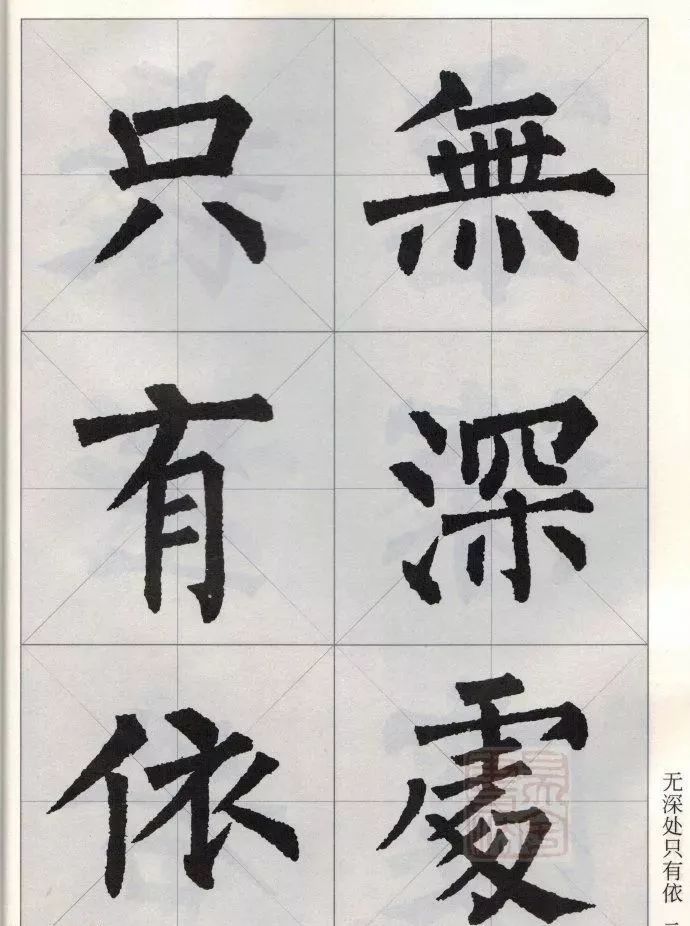 無深處
只有依
无深处只有依